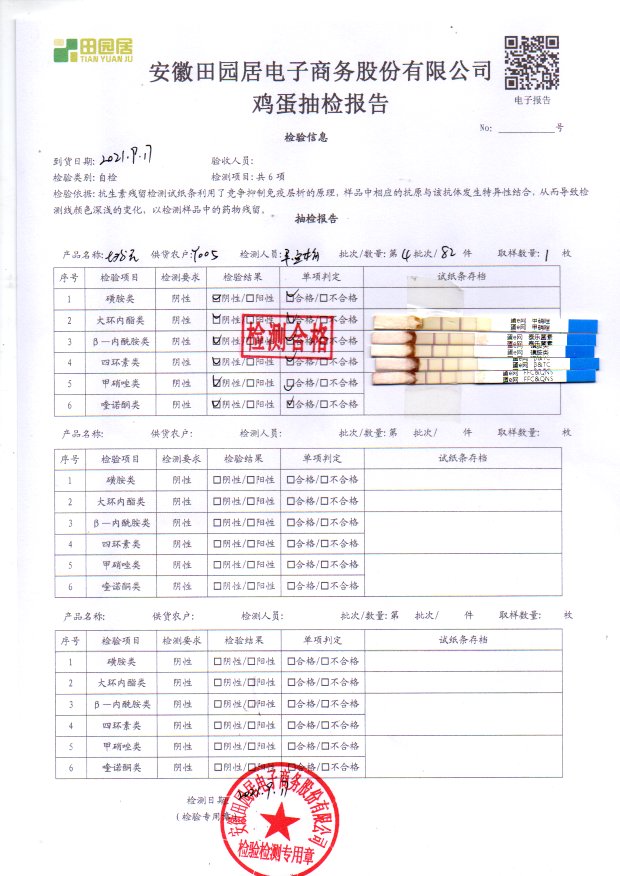 田园居
TIAN YUAN JU
安徽田园居电子商务股份有限公司
鸡蛋抽检报告
电子报告
检验信息
No: ____________号
到货日期: 2021.9.17 验收人员:
检验类别: 自检 检测项目: 共 6 项
检验依据: 抗生素残留检测试纸条利用了竞争抑制免疫层析的原理, 样品中相应的抗原与该抗体发生特异性结合, 从而导致检
测线颜色深浅的变化, 以检测样品中的药物残留。
抽检报告
产品名称: 供货农户: Y005 检测人员: 批次/数量: 第 4 批次/ 82 件 取样数量: 1 枚
序号 检验项目 检测要求 检验结果 单项判定 试纸条存档
1 磺胺类 阴性 ☑阴性/□阳性 ☑合格/□不合格
2 大环内酯类 阴性 ☑阴性/□阳性 ☑合格/□不合格
3 β—内酰胺类 阴性 ☑阴性/□阳性 ☑合格/□不合格
4 四环素类 阴性 ☑阴性/□阳性 ☑合格/□不合格
5 甲硝唑类 阴性 ☑阴性/□阳性 ☑合格/□不合格
6 喹诺酮类 阴性 ☑阴性/□阳性 ☑合格/□不合格
检测合格
甲硝唑
甲硝唑
泰乐菌素
泰乐菌素
磺胺类
磺胺类
B&TC
B&TC
FFC&QNS
FFC&QNS
产品名称: 供货农户: 检测人员: 批次/数量: 第 批次/ 件 取样数量: 枚
序号 检验项目 检测要求 检验结果 单项判定 试纸条存档
1 磺胺类 阴性 □阴性/□阳性 □合格/□不合格
2 大环内酯类 阴性 □阴性/□阳性 □合格/□不合格
3 β—内酰胺类 阴性 □阴性/□阳性 □合格/□不合格
4 四环素类 阴性 □阴性/□阳性 □合格/□不合格
5 甲硝唑类 阴性 □阴性/□阳性 □合格/□不合格
6 喹诺酮类 阴性 □阴性/□阳性 □合格/□不合格
产品名称: 供货农户: 检测人员: 批次/数量: 第 批次/ 件 取样数量: 枚
序号 检验项目 检测要求 检验结果 单项判定 试纸条存档
1 磺胺类 阴性 □阴性/□阳性 □合格/□不合格
2 大环内酯类 阴性 □阴性/□阳性 □合格/□不合格
3 β—内酰胺类 阴性 □阴性/□阳性 □合格/□不合格
4 四环素类 阴性 □阴性/□阳性 □合格/□不合格
5 甲硝唑类 阴性 □阴性/□阳性 □合格/□不合格
6 喹诺酮类 阴性 □阴性/□阳性 □合格/□不合格
检测日期: 2021.9.17
(检验专用章)
安徽田园居电子商务股份有限公司
检验检测专用章